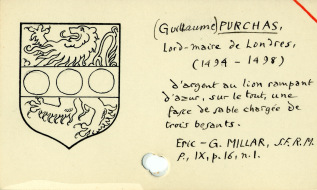 (Guillaume) PURCHAS,
Lord-maire de Londres,
(1494 - 1498)
d'argent au lion rampant
d'azur, sur le tout, une
fasce de sable chargée de
trois besants.
Eric-G. MILLAR, S.F.R.M.
P., IX, p. 16, n. 1.